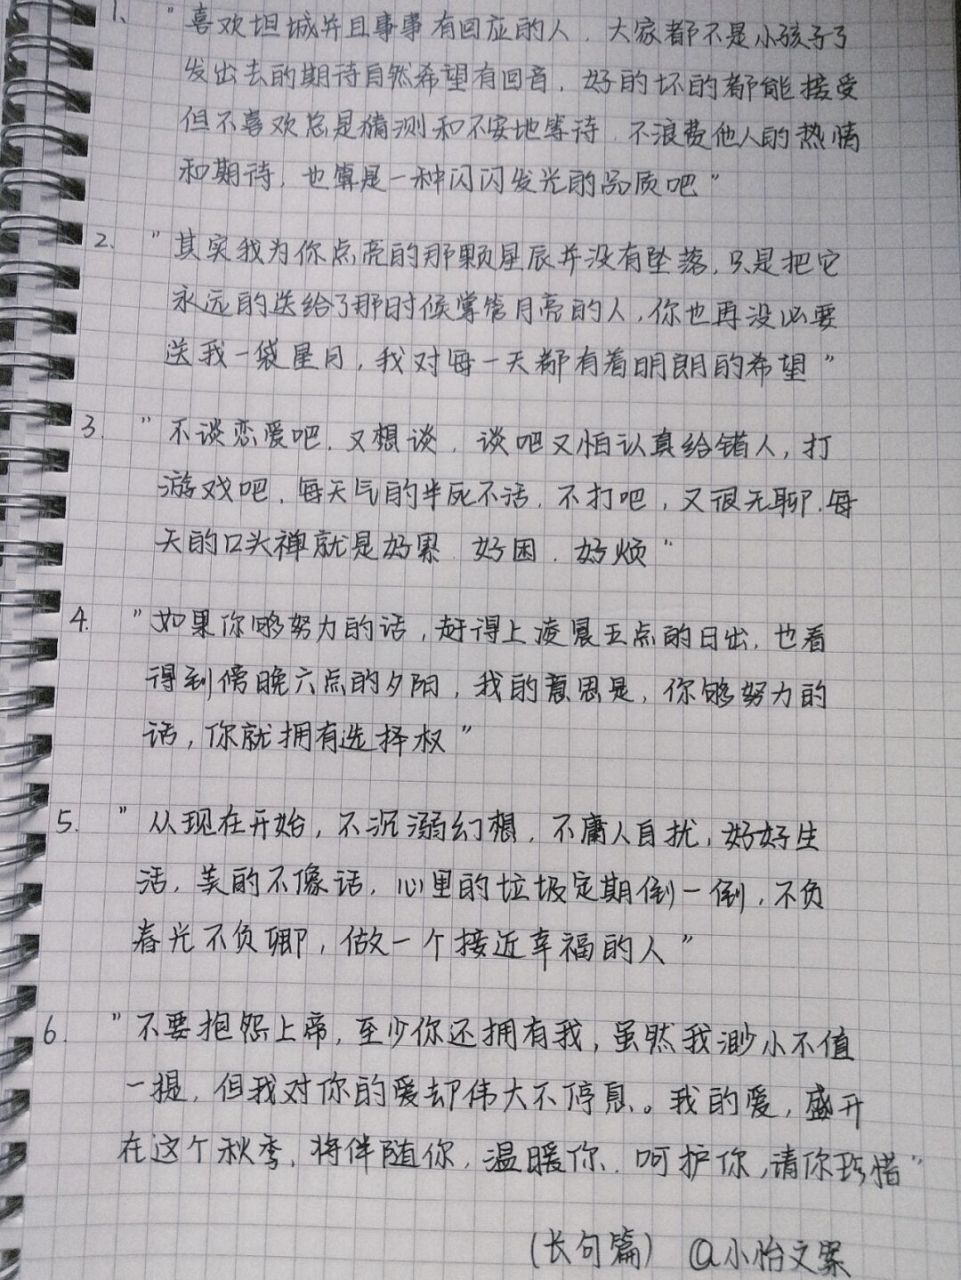 1、"喜欢坦城并且事事有回应的人，大家都不是小孩子了
发出去的期待自然希望有回音，好的坏的都能接受
但不喜欢总是猜测和不安地等待，不浪费他人的热情
和期待，也算是一种闪闪发光的品质吧"
2、"其实我为你点亮的那颗星辰并没有坠落，只是把它
永远的送给了那时候掌管月亮的人，你也再没必要
送我一袋星月，我对每一天都有着明朗的希望"
3、"不谈恋爱吧，又想谈，谈吧又怕认真给错人，打
游戏吧，每天气的半死不活，不打吧，又很无聊，每
天的口头禅就是好累，好困，好烦"
4、"如果你够努力的话，赶得上凌晨五点的日出，也看
得到傍晚六点的夕阳，我的意思是，你够努力的
话，你就拥有选择权"
5、"从现在开始，不沉溺幻想，不庸人自扰，好好生
活，美的不像话，心里的垃圾定期倒一倒，不负
春光不负卿，做一个接近幸福的人"
6、"不要抱怨上帝，至少你还拥有我，虽然我渺小不值
一提，但我对你的爱却伟大不停息。我的爱，盛开
在这个秋季，将伴随你，温暖你，呵护你，请你珍惜"
(长句篇) @小怡文案